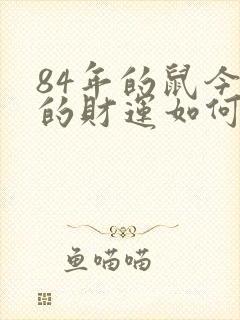 84年的鼠今
的財運如何
鱼喵喵